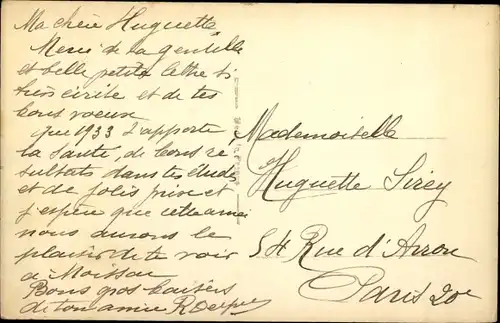 Ma chère Huguette
Merci de ta gentille
et belle petite lettre si
bien écrite et de tes
bons voeux
que 1933 t'apporte
la Santé, de bons ré
sultats dans tes études
et de jolis prix et
j'espère que cette année
nous aurons le
plaisir de te voir
à Moissac
Bons gros baisers
de ton amie
Mademoiselle
Huguette Sirey
54 Rue d'Avron
Paris 20e